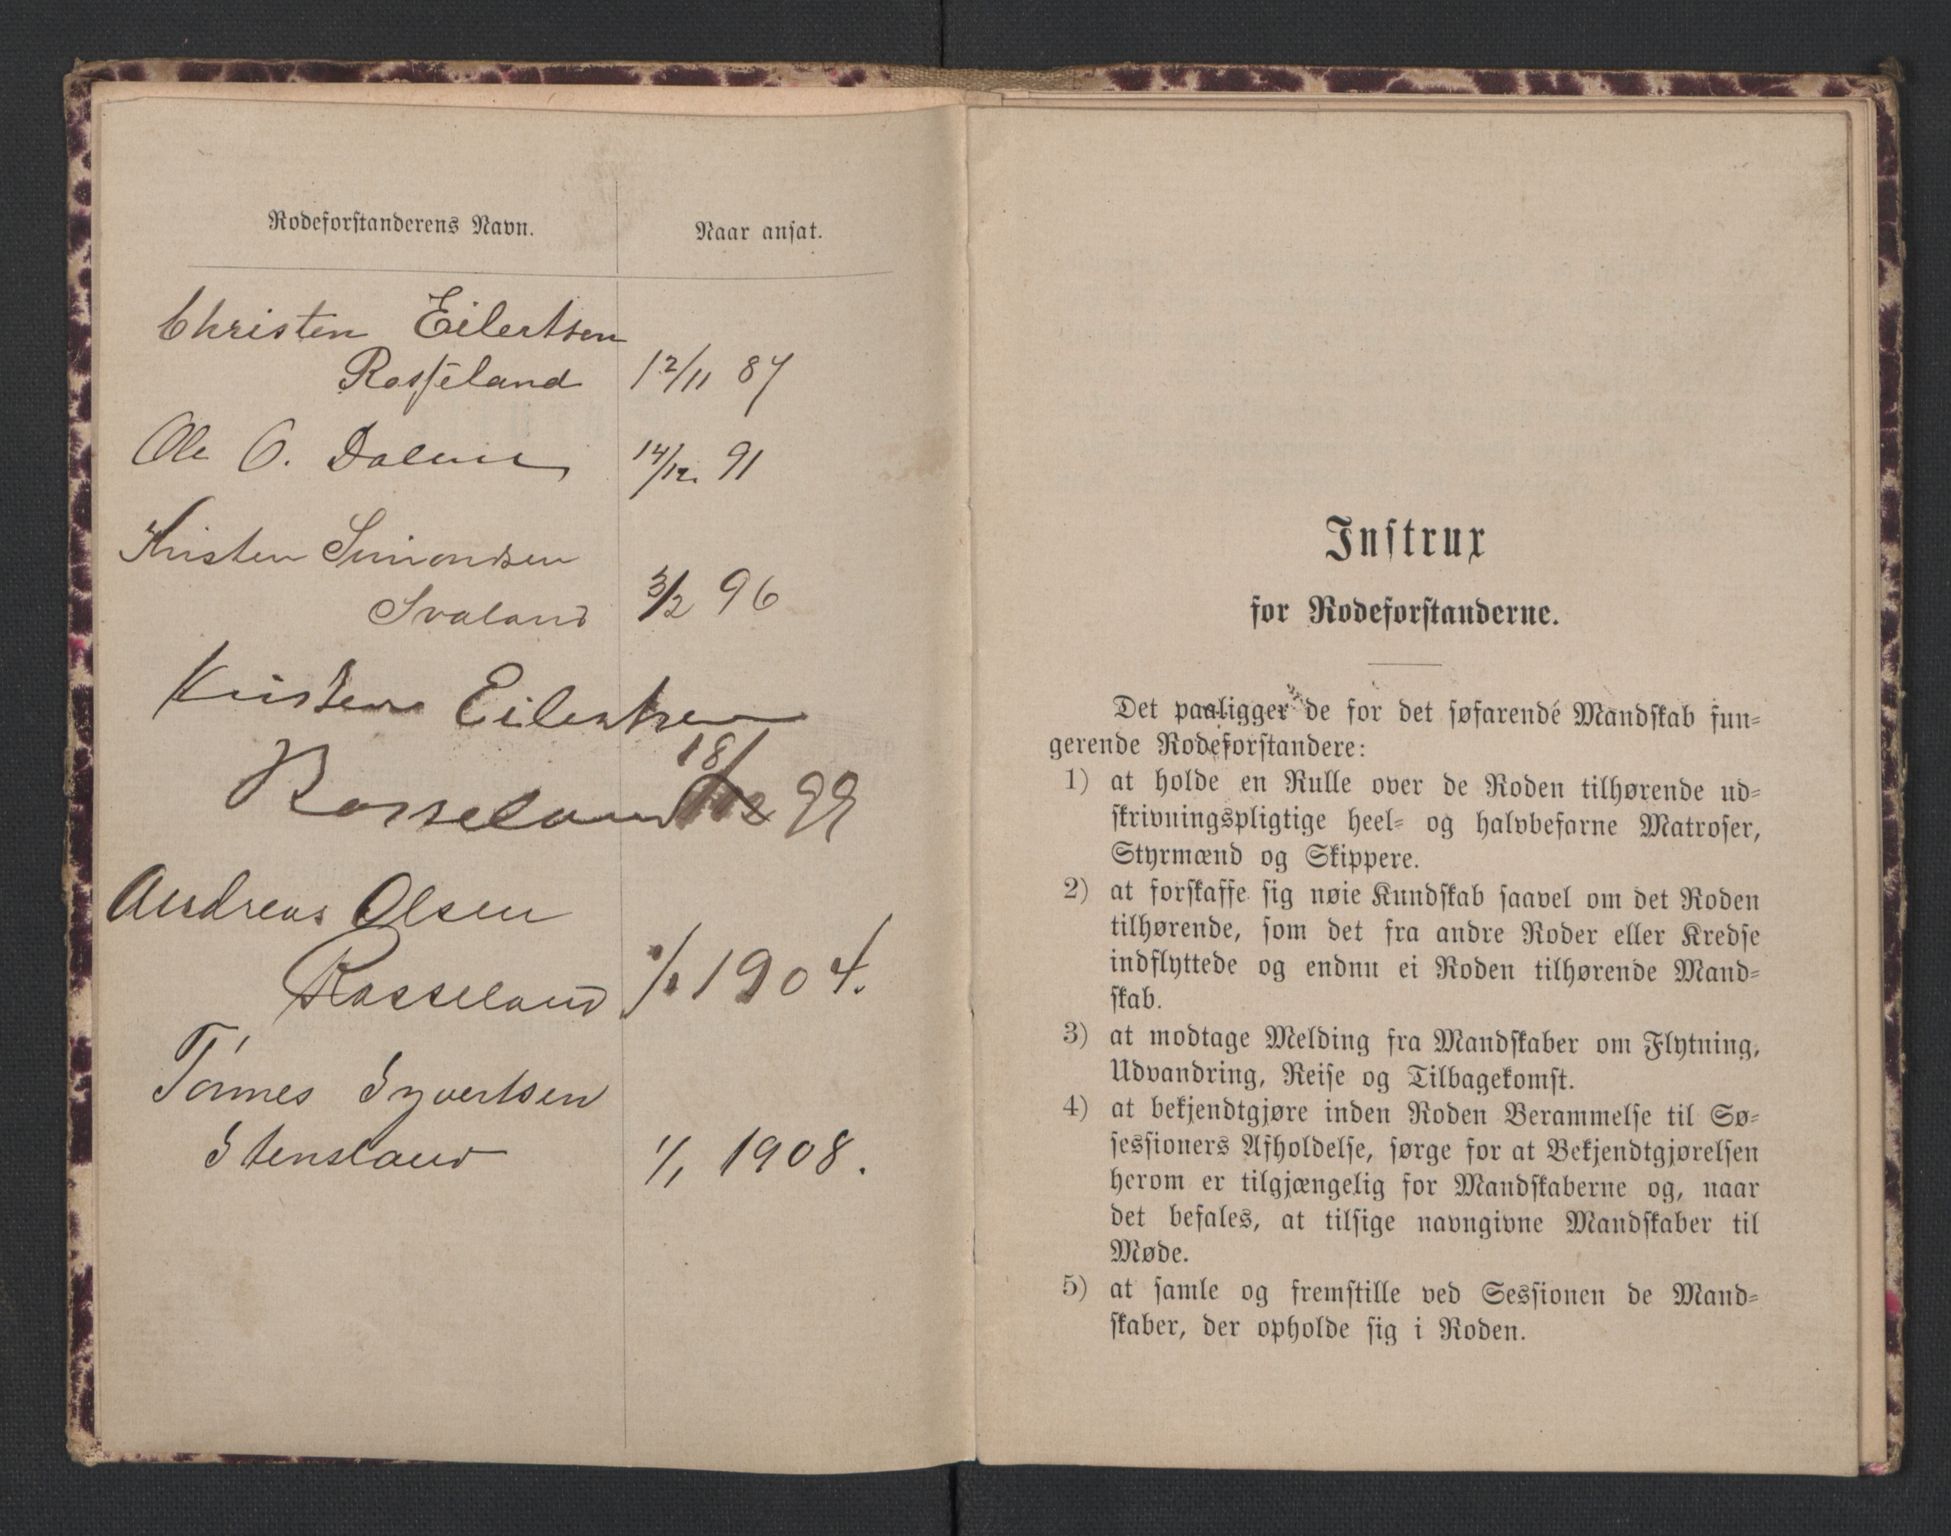 Rodeforstanderens Navn. Naar ansat.
Christen Eilertsen
Rosseland 12/11 87
Ole O. 14/12. 91
Kristen Simondsen
Svaland 3/2 96
Kristen Eilertsen
Rosseland 18/12 99
Andreas Olsen
Rosseland 1/1 1904.
Tönnes Syvertsen
Stensland 1/1 1908.
Instrux
for Rodeforstanderne.
Det paaligger de for det søfarende Mandskab fun-
gerende Rodeforstandere:
1) at holde en Rulle over de Roden tilhørende ud-
skrivningspligtige heel- og halvbefarne Matroser,
Styrmænd og Skippere.
2) at forskaffe sig nøie Kundskab saavel om det Roden
tilhørende, som det fra andre Roder eller Kredse
indflyttede og endnu ei Roden tilhørende Mand-
skab.
3) at modtage Melding fra Mandskaber om Flytning,
Udvandring, Reise og Tilbagekomst.
4) at bekjendtgjøre inden Roden Berammelse til Sø-
sessioners Afholdelse, sørge for at Bekjendtgjørelsen
herom er tilgjængelig for Mandskaberne og, naar
det befales, at tilsige navngivne Mandskaber til
Møde.
5) at samle og fremstille ved Sessionen de Mand-
skaber, der opholde sig i Roden.